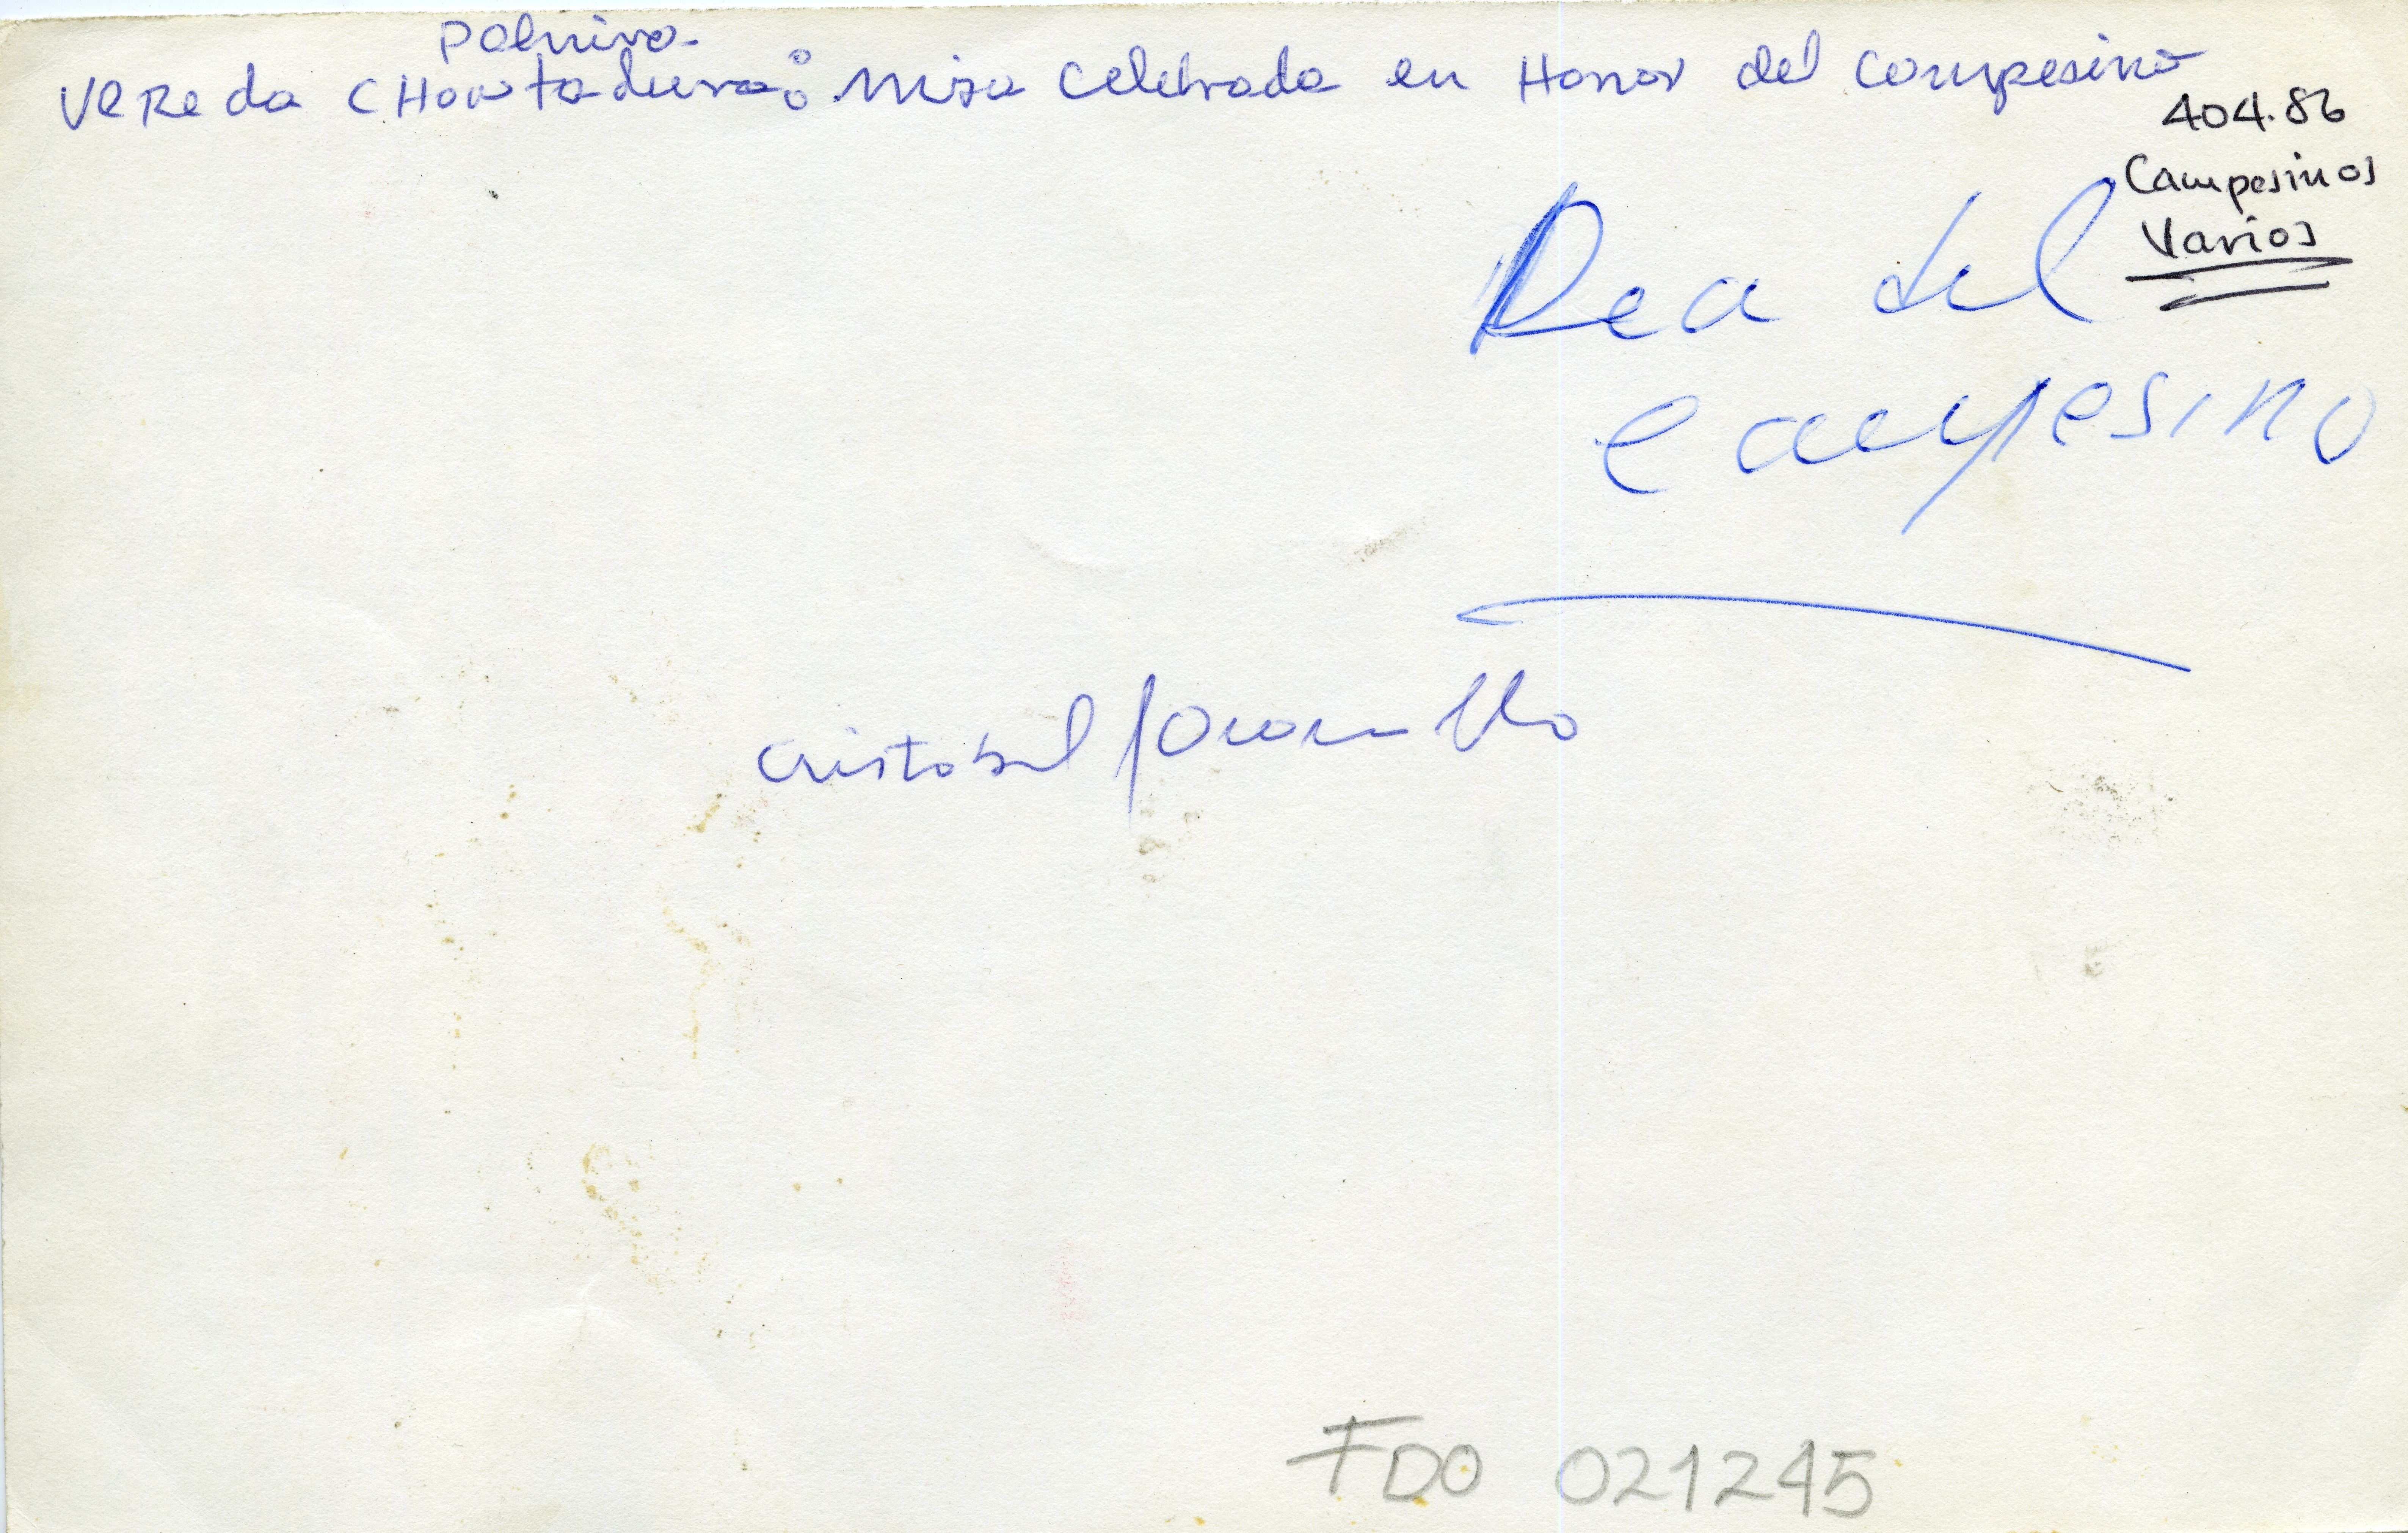 Palmira
Vereda CHontaduro: Misa Celebrada en Honor del Campesino
404.86
Campesinos
Varios
Dea del
campesino
Cristobal Jaramillo
FDO 021245